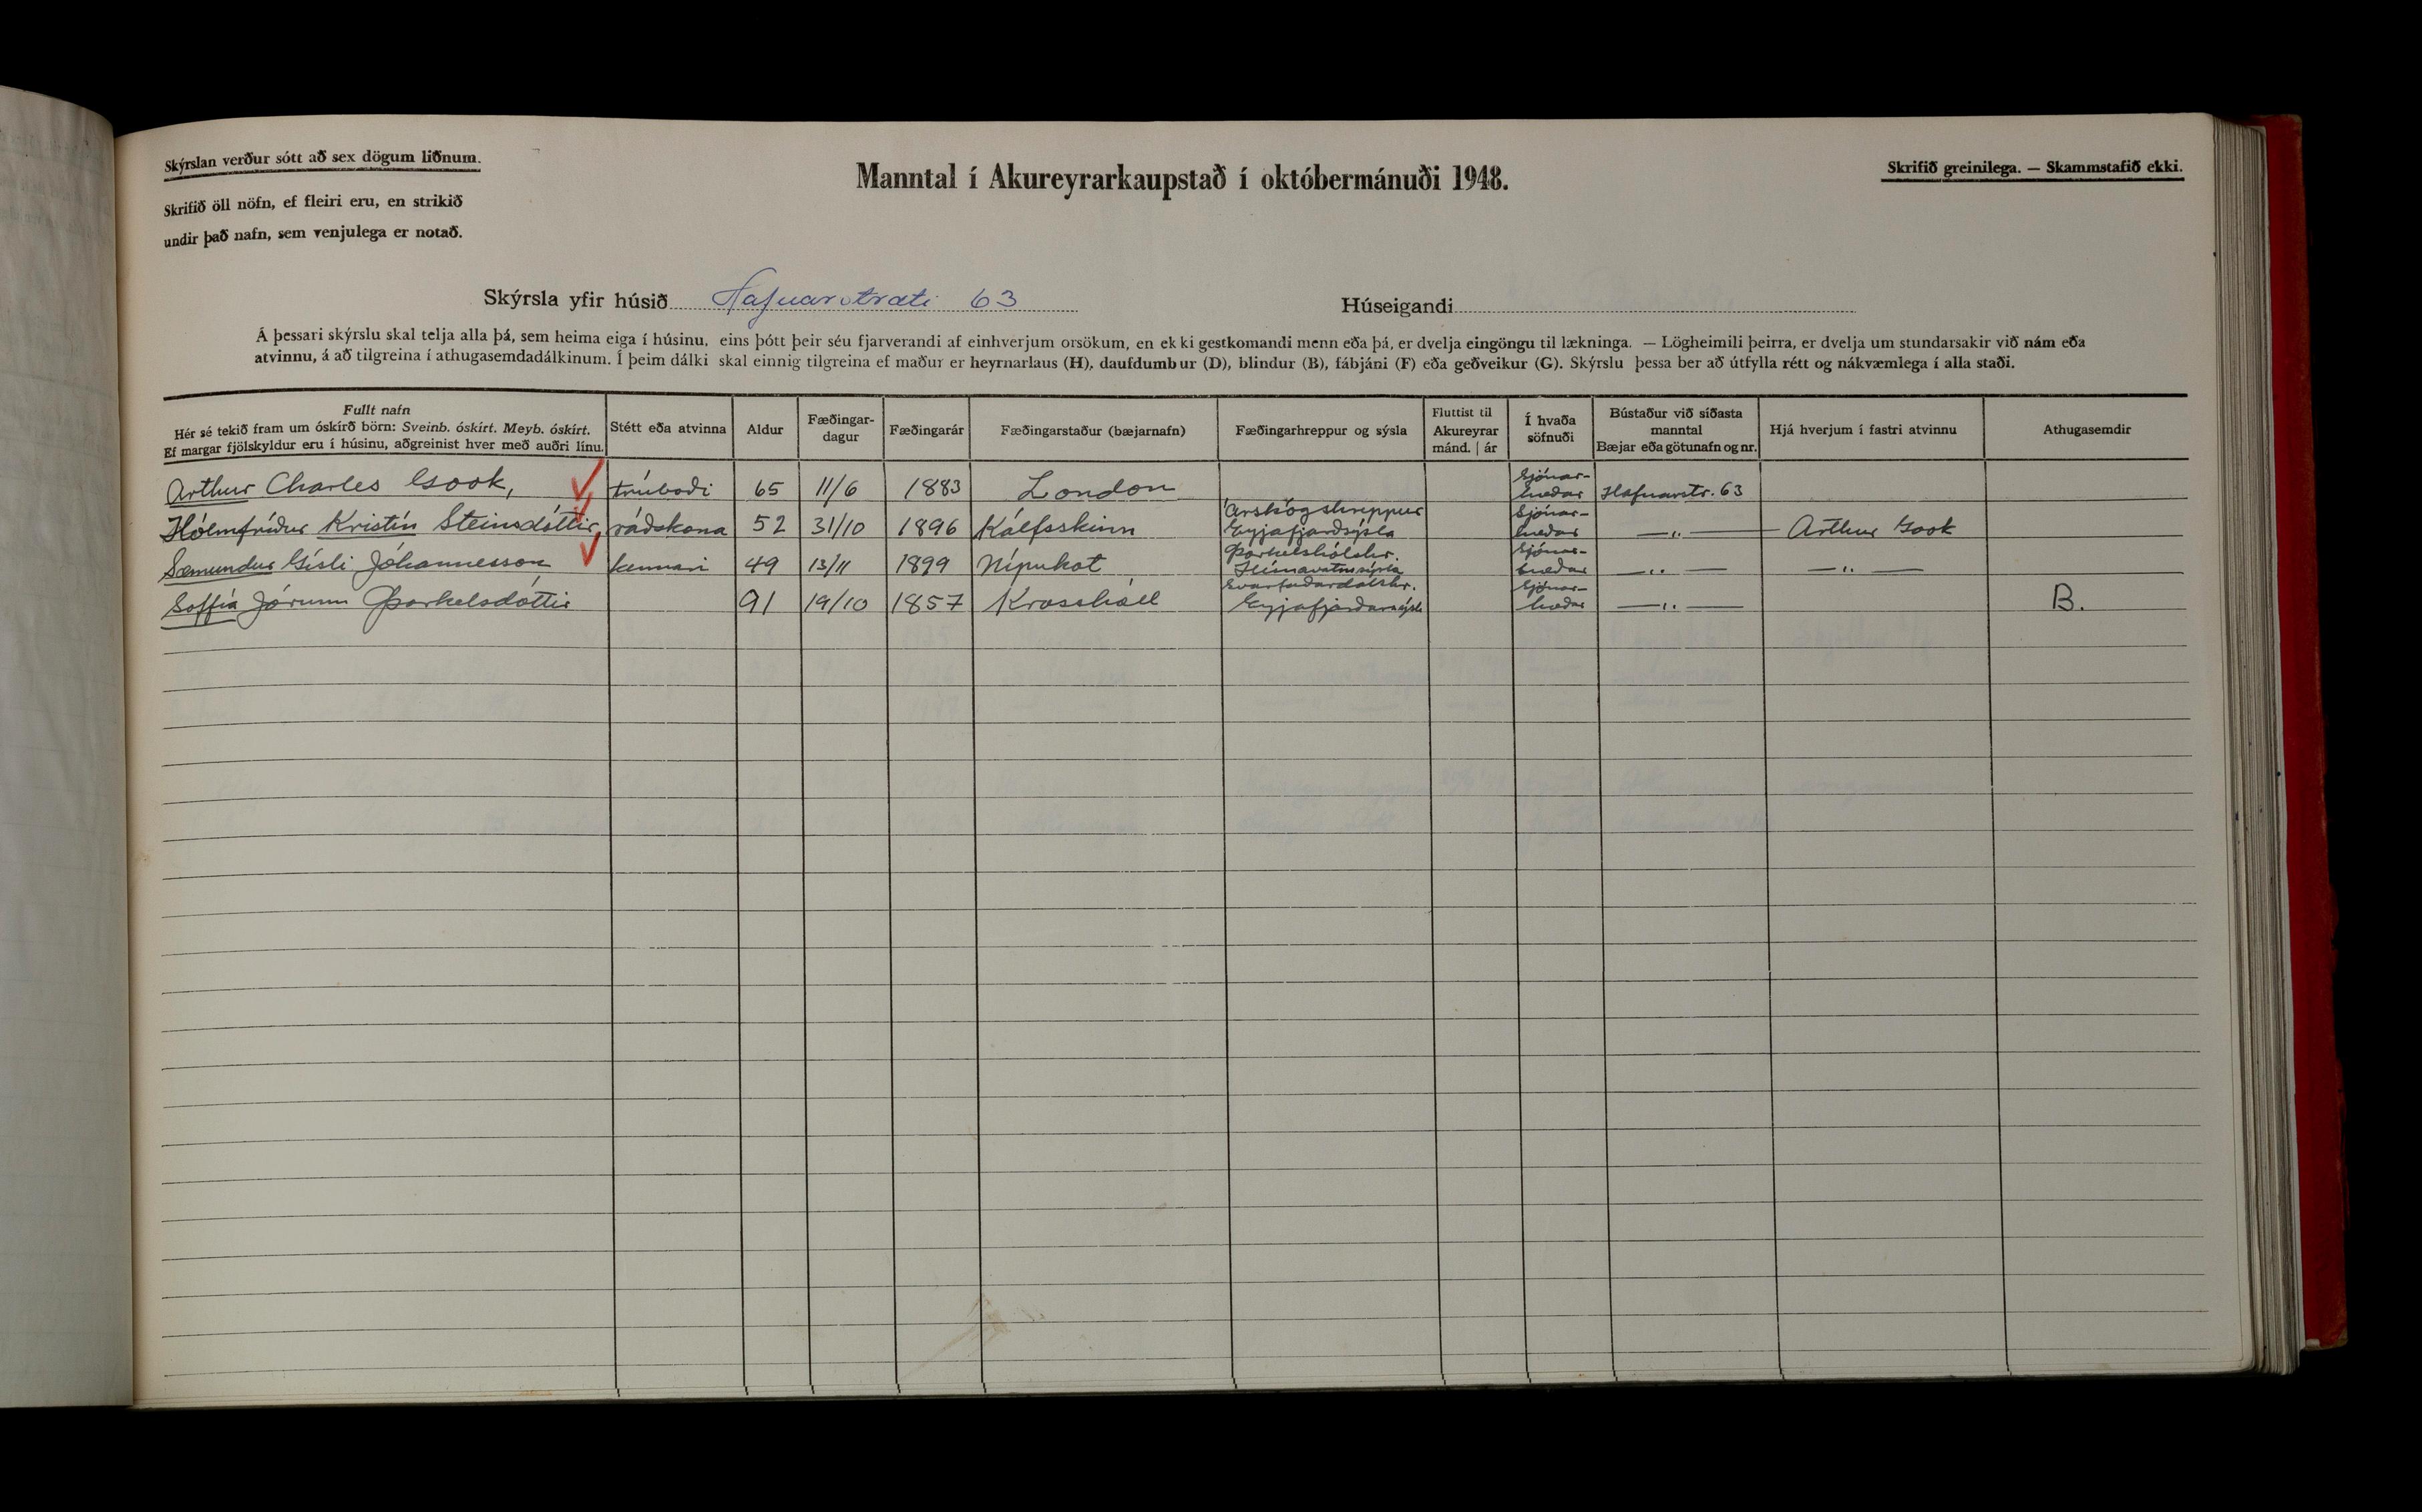 Skýrslan verður sótt að sex dögum liðnum.
Skrifið öll nöfn, ef fleiri eru, en strikið
undir það nafn, sem venjulega er notað.
Manntal í Akureyrarkaupstað í októbermánuði 1948.
Skrifið greinilega. — Skammstafið ekki.
Skýrsla yfir húsið Hafnarstræti 63
Húseigandi
Á þessari skýrslu skal telja alla þá, sem heima eiga í húsinu, eins þótt þeir séu fjarverandi af einhverjum orsökum, en ekki gestkomandi menn eða þá, er dvelja eingöngu til lækninga. — Lögheimili þeirra, er dvelja um stundarsakir við nám eða
atvinnu, á að tilgreina í athugasemdadálkinum. Í þeim dálki skal einnig tilgreina ef maður er heyrnarlaus (H), daufdumbur (D), blindur (B), fábjáni (F) eða geðveikur (G). Skýrslu þessa ber að útfylla rétt og nákvæmlega í alla staði.
Fullt nafn
Hér sé tekið fram um óskírð börn: Sveinb. óskírt. Meyb. óskírt.
Ef margar fjölskyldur eru í húsinu, aðgreinist hver með auðri línu.
Stétt eða atvinna
Aldur
Fæðingar-
dagur
Fæðingarár
Fæðingarstaður (bæjarnafn)
Fæðingarhreppur og sýsla
Fluttist til
Akureyrar
mánd. | ár
Í hvaða
söfnuði
Bústaður við síðasta
manntal
Bæjar eða götunafn og nr.
Hjá hverjum í fastri atvinnu
Athugasemdir
Arthur Charles Gook, trúboði 65 11/6 1883 London Sjónar-
hæðar Hafnarstr. 63
Hólmfríður Kristín Steinsdóttir, ráðskona 52 31/10 1896 Kálfsskinn Árskógshreppur
Eyjafjarðsýsla Sjónar-
hæðar —"— Arthur Gook
Sæmundur Gísli Jóhannesson kennari 49 13/11 1899 Nípukot Þorkelshólshr.
Húnavatnssýsla Sjónar-
hæðar —"— —"—
Soffía Jórunn Þorkelsdóttir 91 19/10 1857 Krosshóll Svarfaðardalshr.
Eyjafjarðarsýsla Sjónar-
hæðar —"— B.